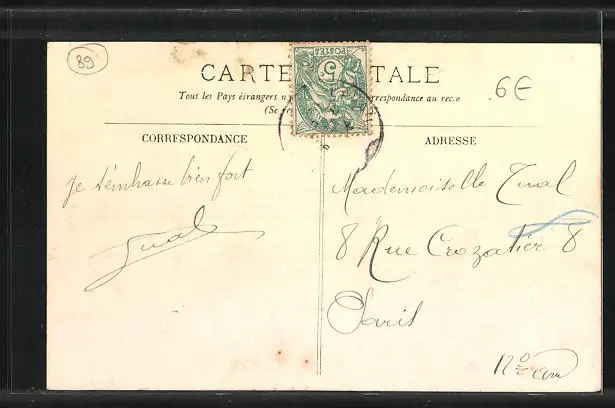 89
CARTE POSTALE
6€
Tous les Pays étrangers n correspondance au rec.o
(Se
POSTES
5
CORRESPONDANCE
ADRESSE
Je t'embrasse bien fort
Tual
Mademoiselle Tual
8 Rue Crozatier 8
Paris
12e